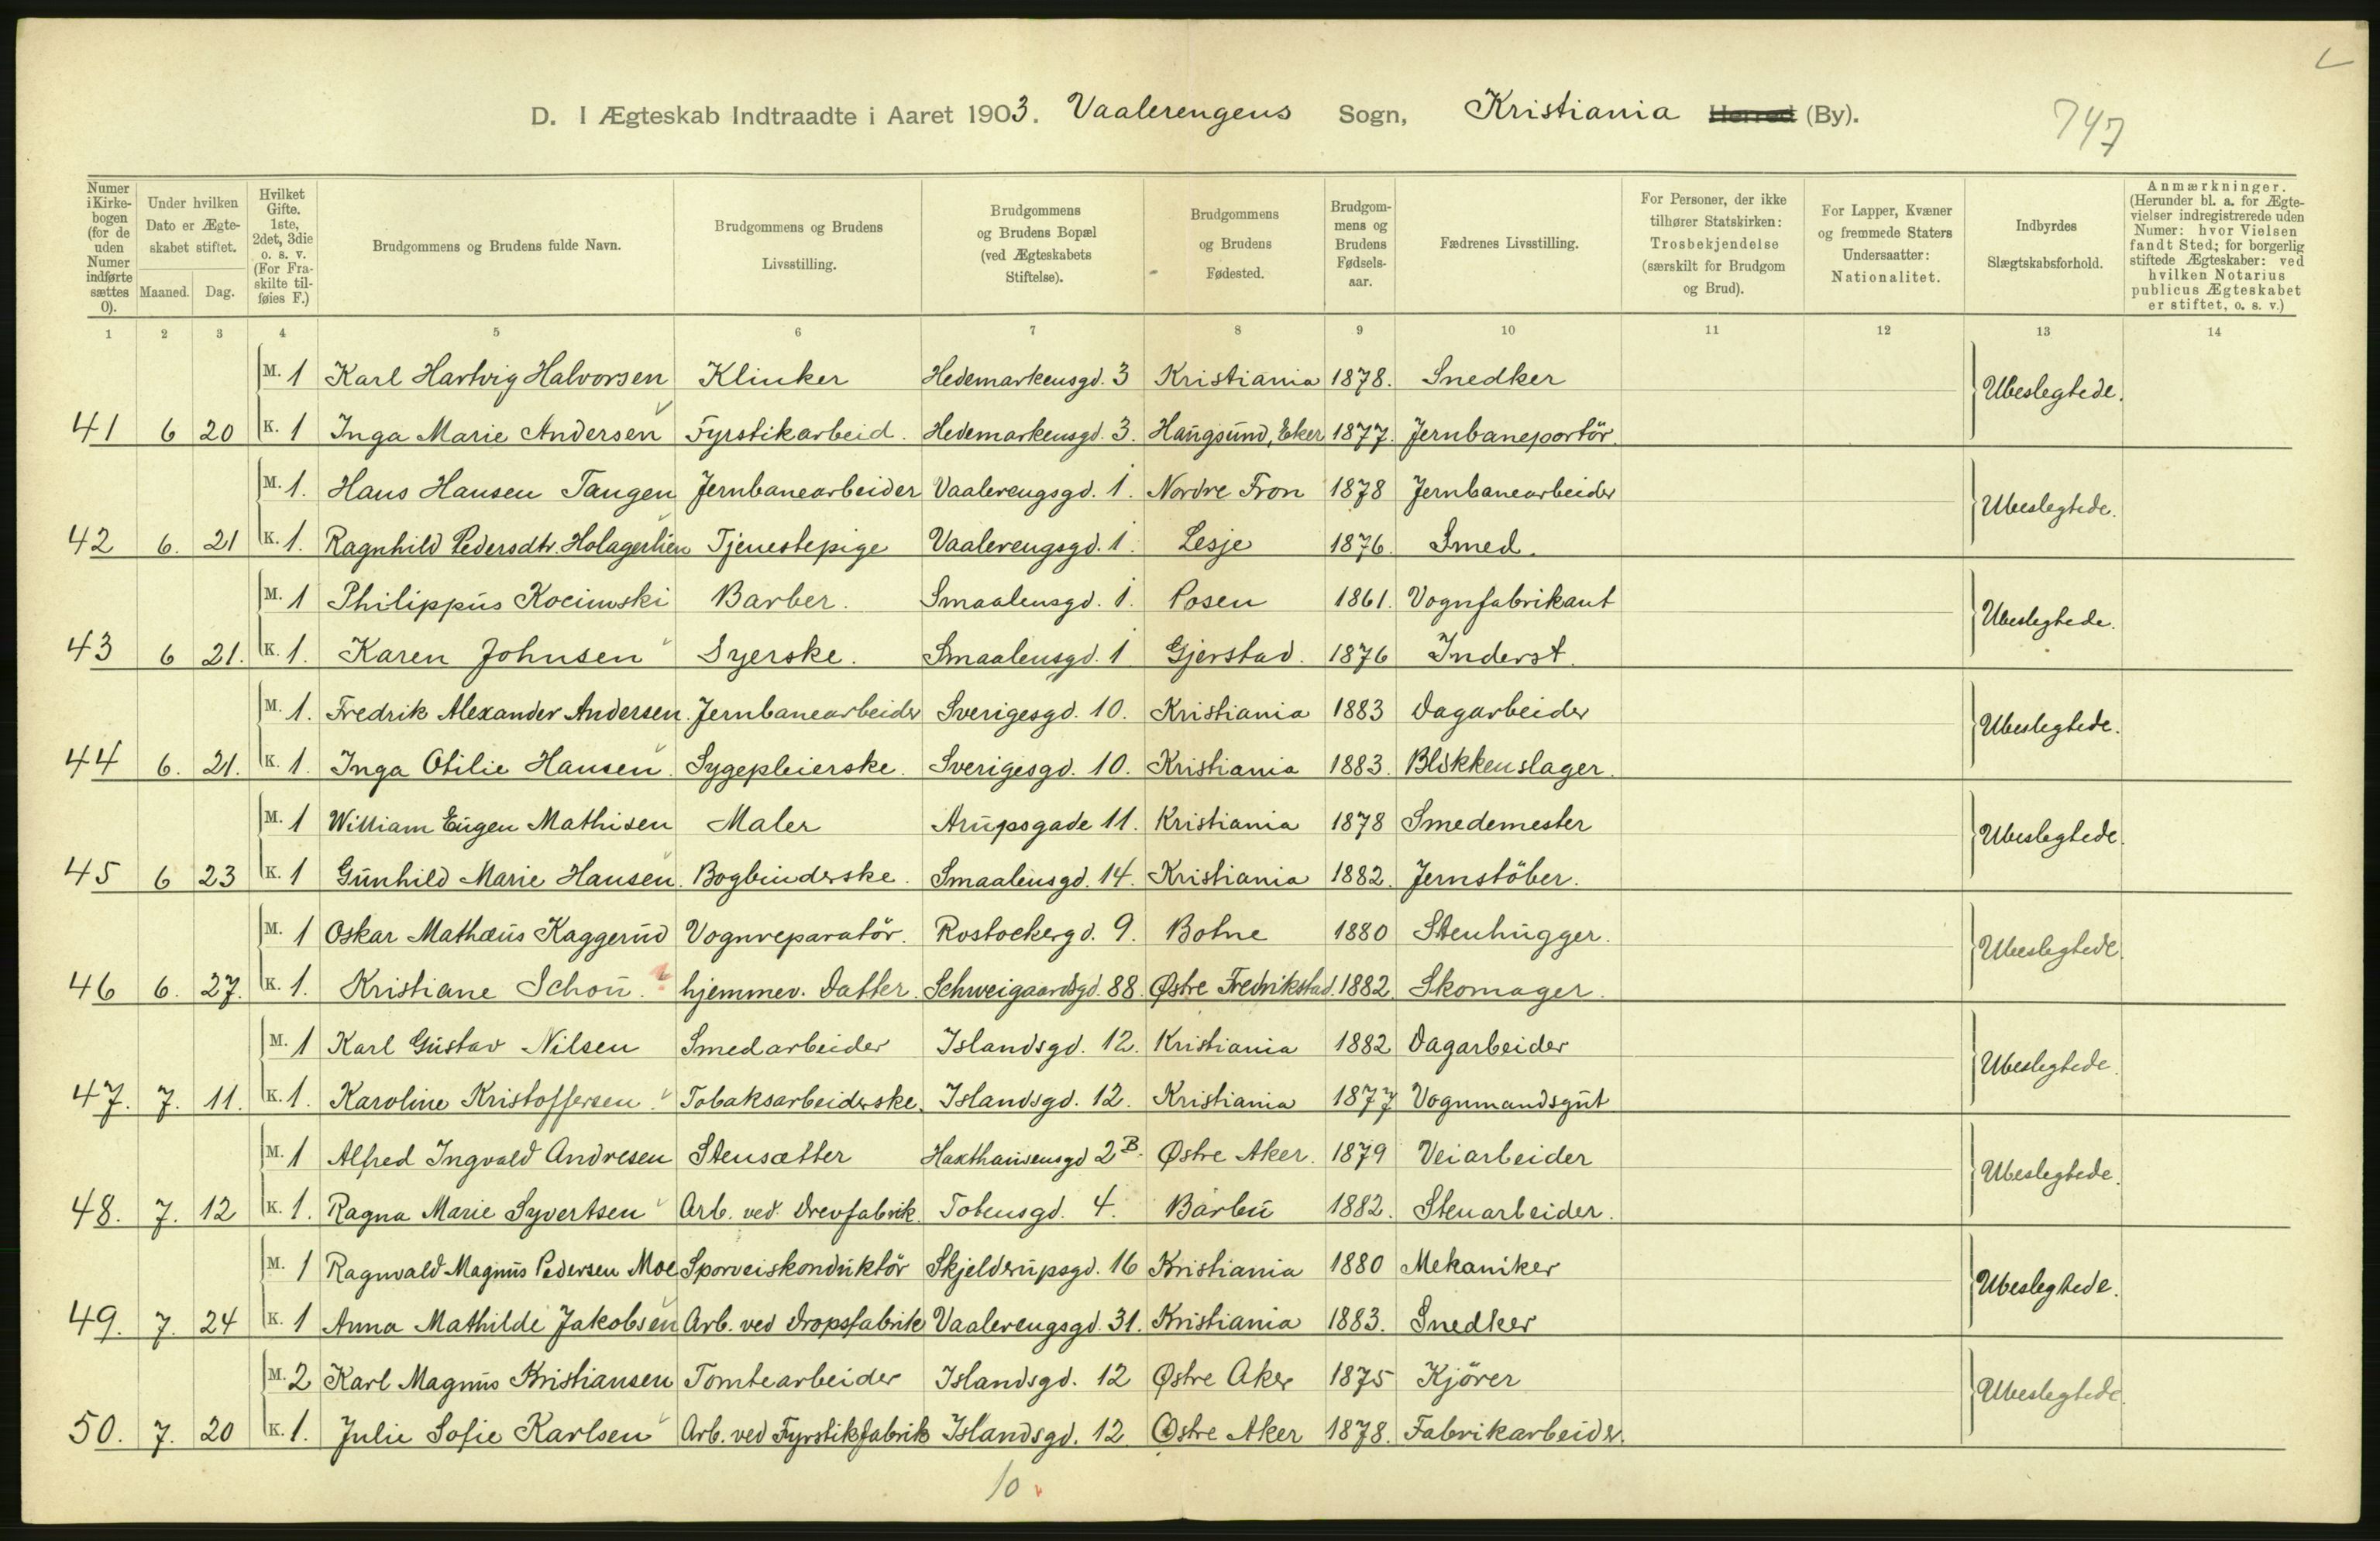 L
D. I Ægteskab Indtraadte i Aaret 1903. Vaalerengens Sogn, Kristiania Herred (By).
747
Numer i Kirkebogen (for de uden Numer indførte sættes 0).
Under hvilken Dato er Ægteskabet stiftet.
Maaned. Dag.
Hvilket Gifte. 1ste, 2det, 3die o. s. v. (For Fraskilte tilføies F.)
Brudgommens og Brudens fulde Navn.
Brudgommens og Brudens Livsstilling.
Brudgommens og Brudens Bopæl (ved Ægteskabets Stiftelse).
Brudgommens og Brudens Fødested.
Brudgommens og Brudens Fødselsaar.
Fædrenes Livsstilling.
For Personer, der ikke tilhører Statskirken: Trosbekjendelse (særskilt for Brudgom og Brud).
For Lapper, Kvæner og fremmede Staters Undersaatter: Nationalitet.
Indbyrdes Slægtskabsforhold.
Anmærkninger. (Herunder bl. a. for Ægtevielser indregistrerede uden Numer: hvor Vielsen fandt Sted; for borgerlig stiftede Ægteskaber: ved hvilken Notarius publicus Ægteskabet er stiftet, o. s. v.)
1 2 3 4 5 6 7 8 9 10 11 12 13 14
M. 1 Karl Hartvig Halvorsen Klinker Hedemarkensgd. 3 Kristiania 1878. Snedker Ubeslegtede.
41 6 20 K. 1 Inga Marie Andersen Fyrstikarbeid. Hedemarkensgd. 3. Haugsund, Eker 1877. Jernbaneportör.
M. 1. Hans Hansen Tangen Jernbanearbeider Vaalerengsgd. 1. Nordre Fron 1878 Jernbanearbeider Ubeslegtede.
42 6. 21 K. 1. Ragnhild Pedersdtr. Holagerlien Tjenestepige Vaalerengsgd. 1. Lesje 1876. Smed.
M. 1 Philippus Kocimski Barber. Smaalensgd. 1. Posen 1861. Vognfabrikant Ubeslegtede.
43 6 21. K. 1. Karen Johnsen Syerske. Smaalensgd. 1 Gjerstad. 1876 Inderst.
M. 1. Fredrik Alexander Andersen. Jernbanearbeider Sverigesgd. 10. Kristiania 1883 Dagarbeider Ubeslegtede.
44 6. 21. K. 1. Inga Otilie Hansen. Sygepleierske. Sverigesgd. 10. Kristiania 1883. Blikkenslager.
M. 1 William Eugen Mathisen Maler Arupsgade 11. Kristiania 1878 Smedemester Ubeslegtede.
45 6 23 K. 1 Gunhild Marie Hansen. Bogbinderske. Smaalensgd. 14. Kristiania 1882. Jernstöber.
M. 1 Oskar Mathæus Kaggerud Vognreparatör. Rostockergd. 9. Botne 1880 Stenhugger. Ubeslegtede.
46 6. 27. K. 1. Kristiane Schou. hjemmev. Datter. Schweigaardsgd. 88. Østre Fredrikstad. 1882. Skomager.
M. 1 Karl Gustav Nilsen Smedarbeider Islandsgd. 12. Kristiania 1882 Dagarbeider Ubeslegtede.
47. 7. 11. K. 1. Karoline Kristoffersen. Tobaksarbeiderske. Islandsgd. 12. Kristiania 1877 Vognmandsgut
M. 1 Alfred Ingvald Andresen Stensætter Haxthausensgd 2B. Østre Aker. 1879 Veiarbeider Ubeslegtede.
48. 7. 12 K. 1. Ragna Marie Syvertsen Arb. ved Drevfabrik. Totensgd. 4. Barbu 1882. Stenarbeider.
M. 1 Ragnvald Magnus Pedersen Moe Sporveiskonduktör Skjelderupsgd. 16 Kristiania 1880 Mekaniker Ubeslegtede.
49. 7. 24 K. 1 Anna Mathilde Jakobsen Arb. ved Dropsfabrik Vaalerengsgd. 31. Kristiania 1883. Snedker
M. 2 Karl Magnus Kristiansen Tomtearbeider Islandsgd. 12 Østre Aker 1875 Kjörer Ubeslegtede.
50. 7. 20 K. 1. Julie Sofie Karlsen Arb. ved Fyrstikfabrik Islandsgd. 12. Østre Aker 1878. Fabrikarbeider.
10